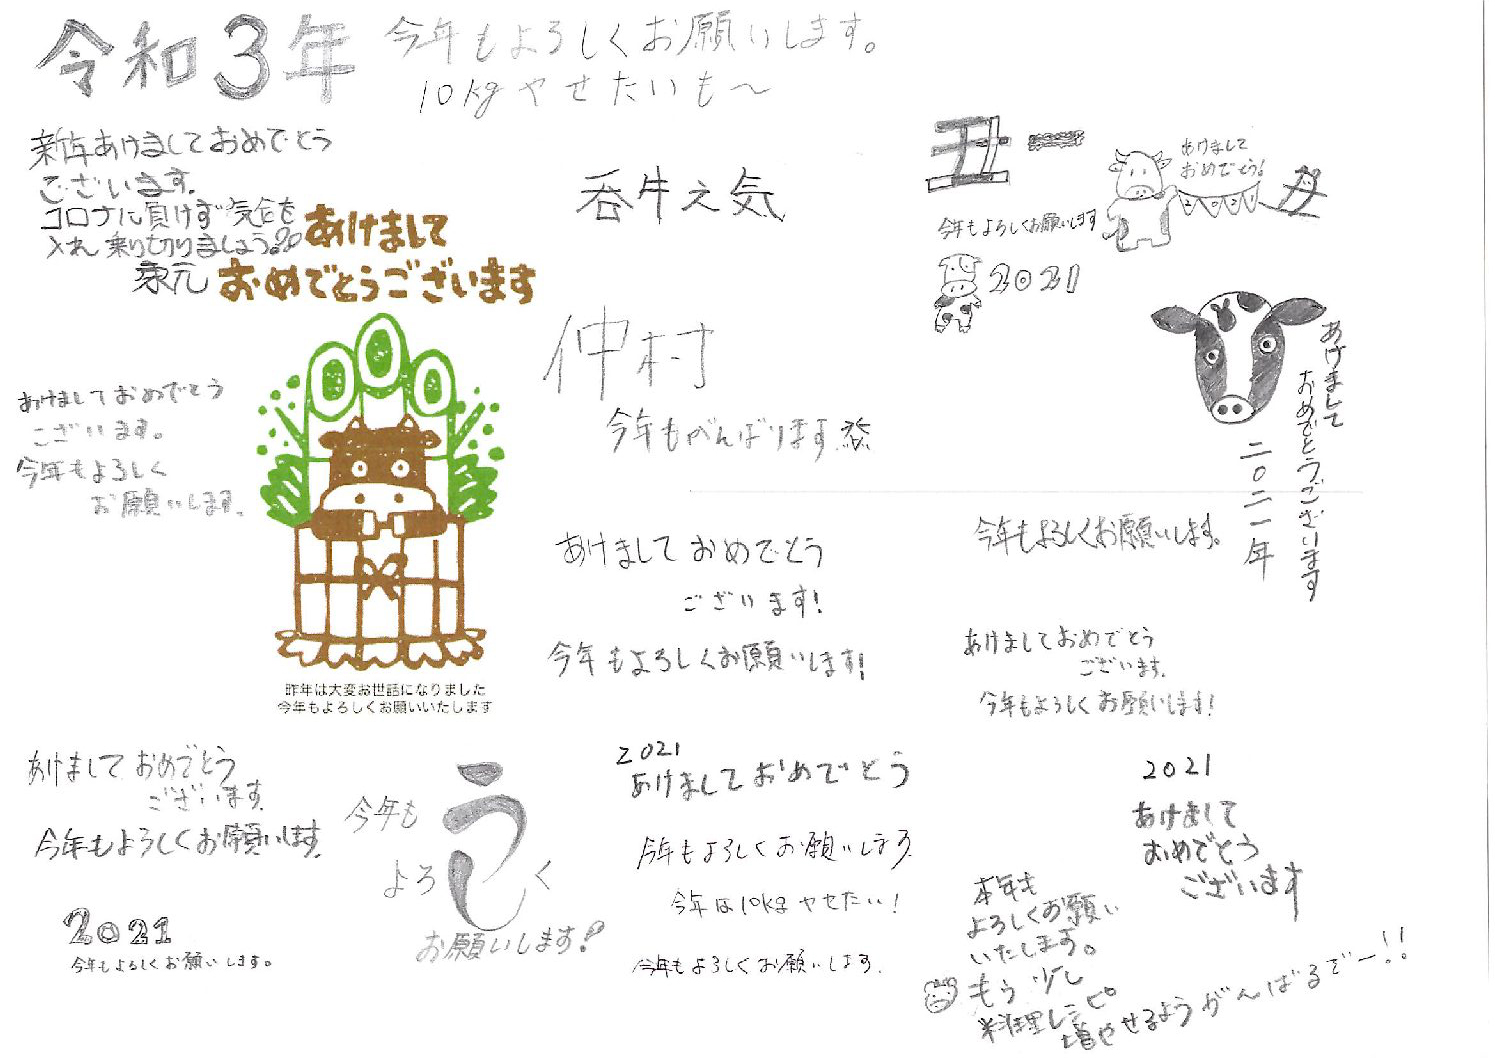 令和3年
今年もよろしくお願いします。
10kgやせたいも〜
新年あけましておめでとう
ございます。
コロナに負けず気合を
入れ乗り切りましょう。
あけまして
おめでとうございます
呑牛之気
仲村
今年もがんばります
丑
今年もよろしくお願いします
あけまして
おめでとう!
2021
2021
あけまして
おめでとうございます
二〇二一年
あけましておめでとう
ございます。
今年もよろしく
お願いします。
昨年は大変お世話になりました
今年もよろしくお願いいたします
あけましておめでとう
ございます!
今年もよろしくお願いします!
今年もよろしくお願いします。
あけましておめでとう
ございます。
今年もよろしくお願いします!
あけましておめでとう
ございます。
今年もよろしくお願いします。
2021
今年もよろしくお願いします。
今年も
よろしく
う
お願いします!
2021
あけましておめでとう
今年もよろしくお願いします
今年は10kgやせたい!
今年もよろしくお願いします。
2021
あけまして
おめでとう
ございます
本年も
よろしくお願い
いたします。
もう少し
料理レシピ
増やせるようがんばるでー!!